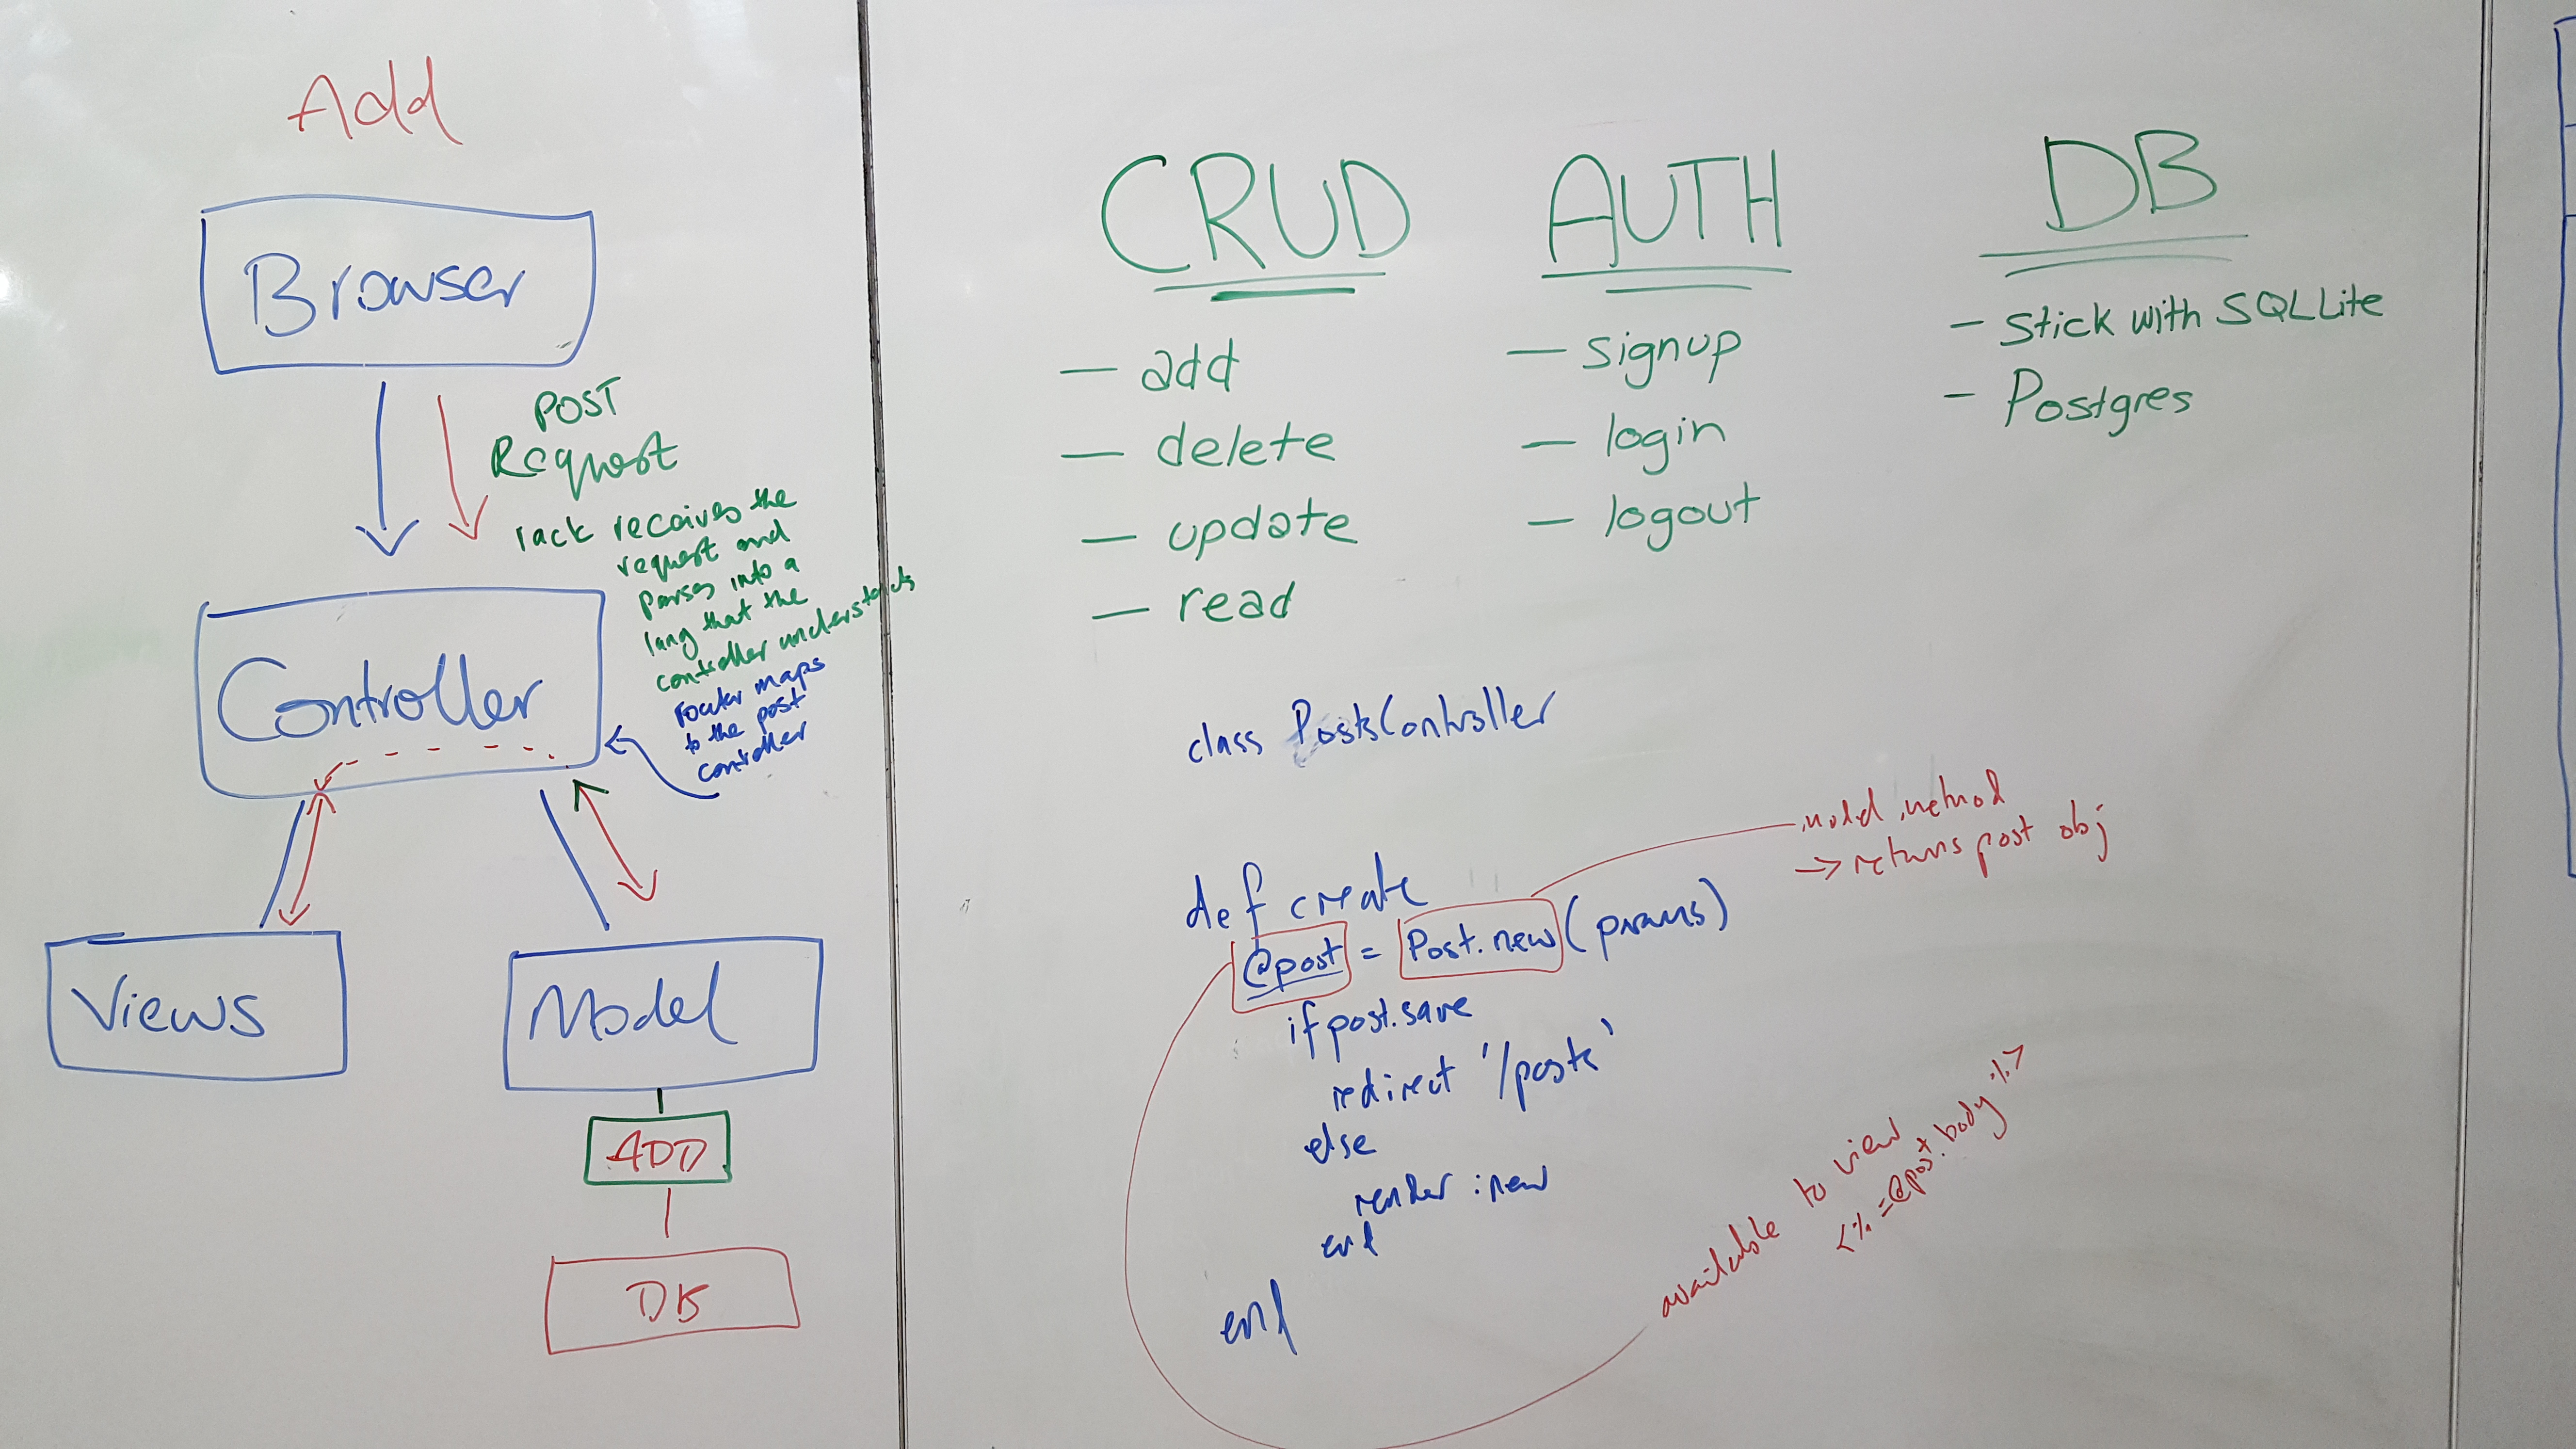 Add
Browser
POST
Request
rack receives the
request and
parses into a
lang that the
controller understands
router maps
to the post
controller
Controller
Views
Model
ADD
DB
CRUD
— add
— delete
— update
— read
AUTH
— signup
— login
— logout
DB
- Stick with SQLLite
- Postgres
class PostsController
def create
@post = Post.new(params)
if post.save
redirect '/posts'
else
render :new
end
end
model method
→ returns post obj
available to view
<%=@post.body%>